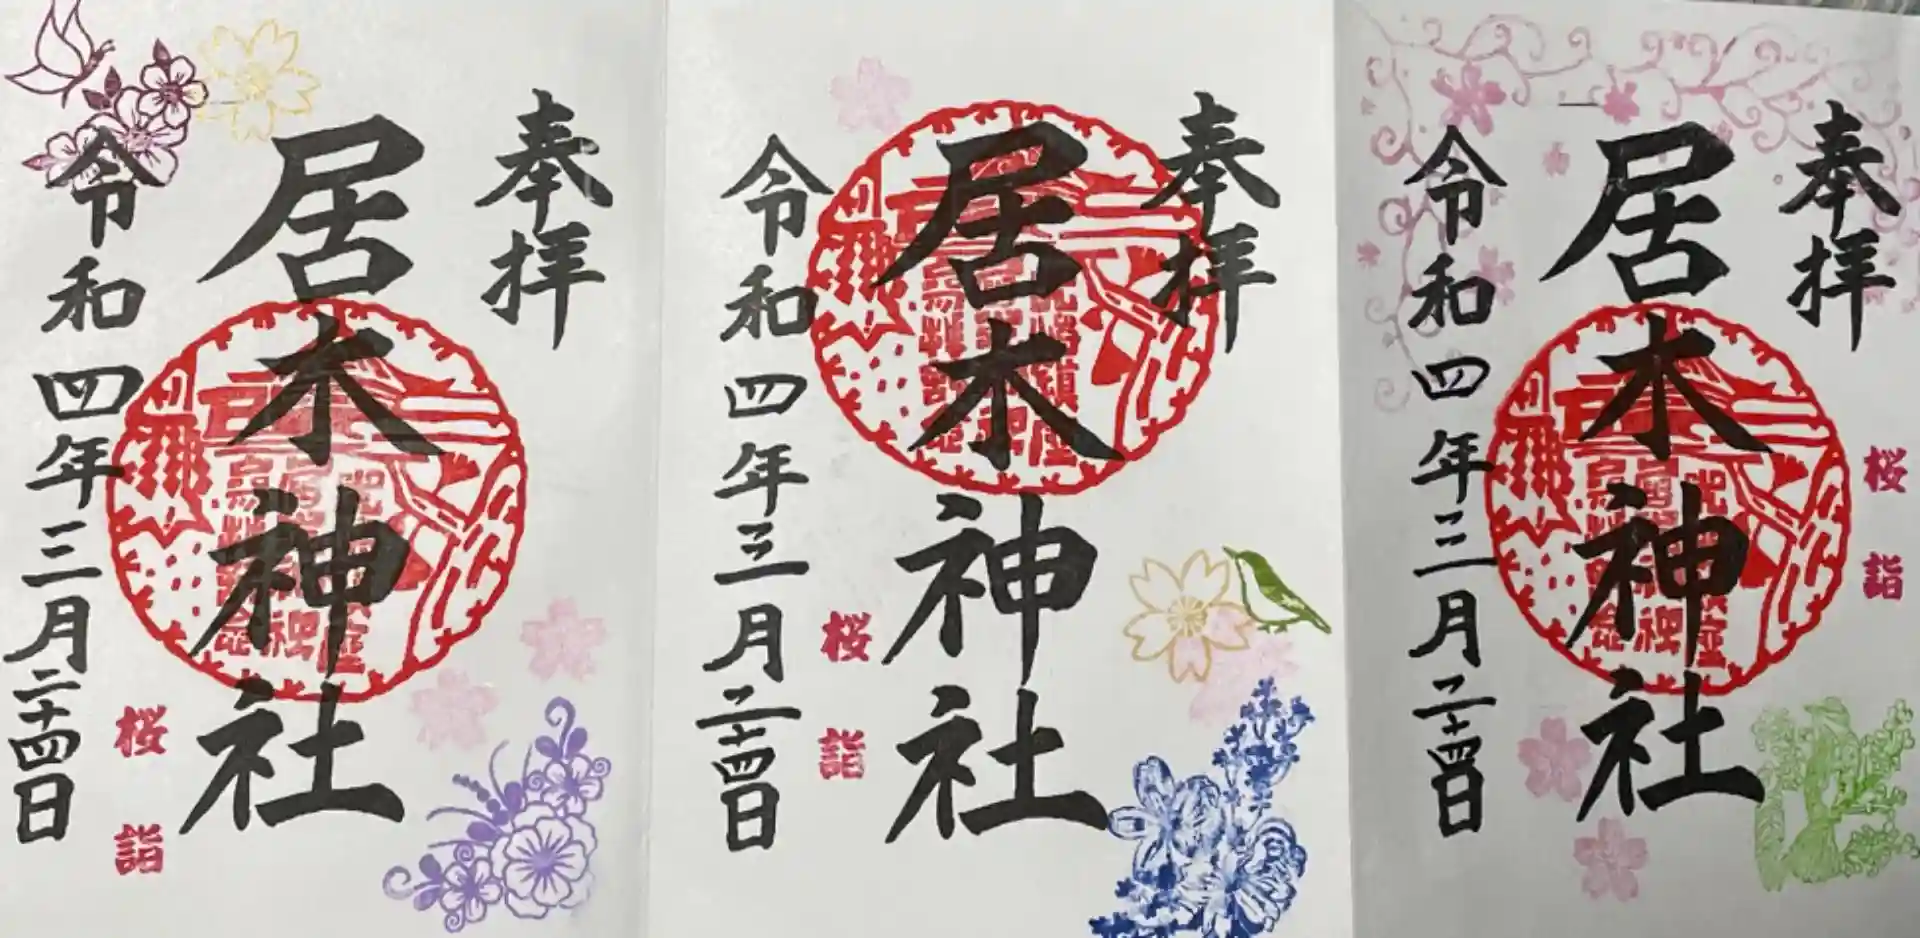 奉拝
居木神社
令和四年三月二十四日
桜詣
奉拝
居木神社
令和四年三月二十四日
桜詣
奉拝
居木神社
令和四年三月二十四日
桜詣